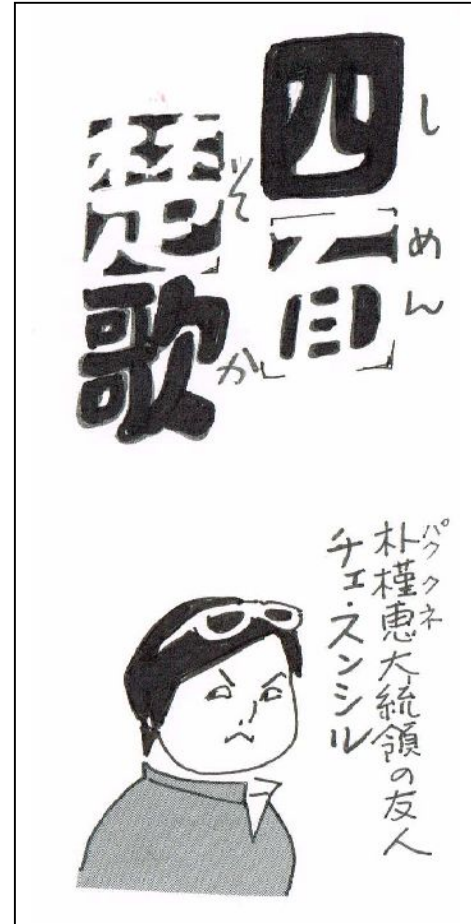 四面
しめん
楚歌
そか
パククネ
朴槿恵大統領の友人
チェ・スンシル